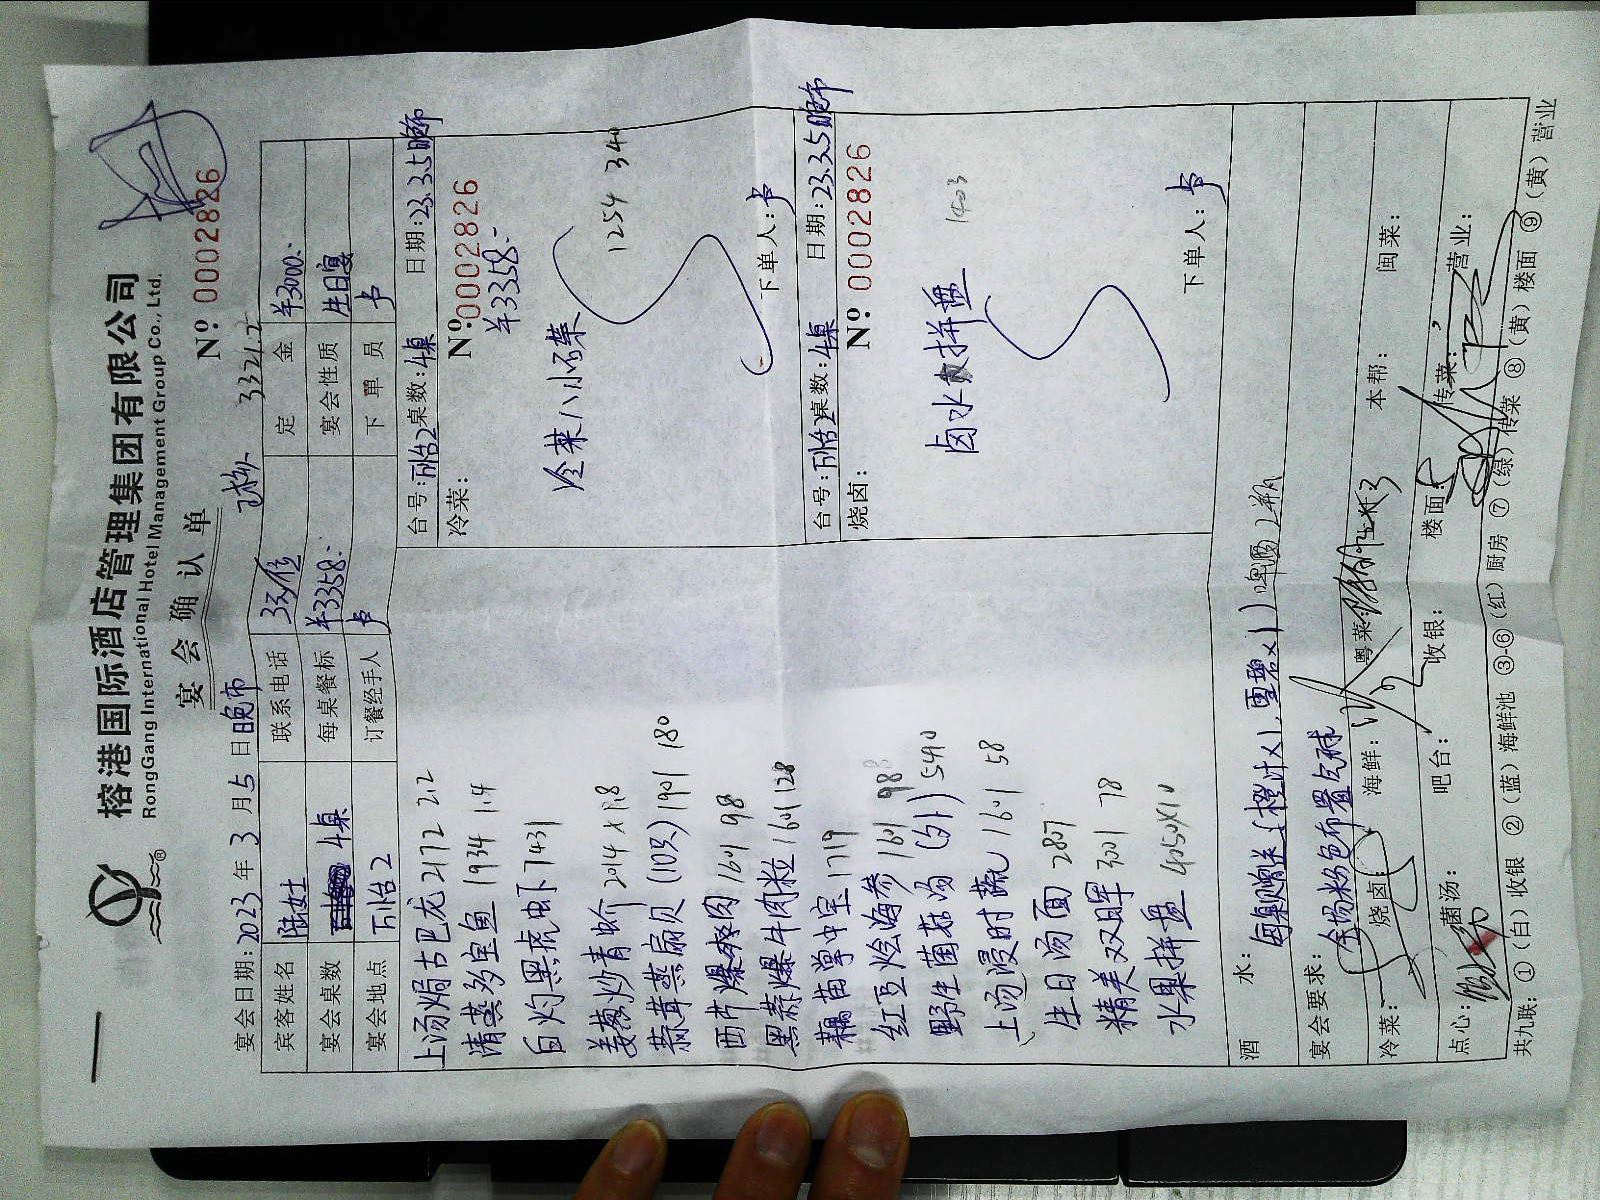 榕港国际酒店管理集团有限公司
RongGang International Hotel Management Group Co., Ltd.
宴会确认单
№ 0002826
宴会日期:2023年3月5日晚市
3321.2
宾客姓名 陆女士 联系电话 定金 ¥3000.-
宴会桌数 4桌 每桌餐标 ¥3358.- 宴会性质 生日宴
宴会地点 万怡2 订餐经手人 卢 下單员 卢
上汤焗古巴龙 2172 2.2
清蒸多宝鱼 1934 1.4
白灼黑虎虾 1431
姜葱炒青蚧 2014 x 1.8
蒜茸蒸扇贝(10只) 1901 180
西芹爆爽肉 1601 98
黑蒜爆牛肉粒 1601 128
藕苗掌中宝 1719
红豆烩海参 1601 98
野生菌菇汤(外) 540
上汤浸时蔬 1601 58
生日汤面 2807
精美双晖 3001 78
水果拼盘 4050X10
台号:万怡2 桌数:4桌 日期:23.3.5晚市
冷菜: №0002826
¥3358.-
冷菜八小碟
1254 340
下单人:卢
台号:万怡2 桌数:4桌 日期:23.3.5晚市
烧卤: №0002826
卤水拼盘 1403
下单人:卢
酒水: 每桌赠送{橙汁x1,雪碧x1}
宴会要求: 全场粉色布置气球
冷菜: 烧卤: 海鲜: 粤菜 本帮: 闽菜:
点心: 菌汤: 吧台: 收银: 楼面: 传菜: 营业:
共九联: ①(白)收银 ②(蓝)海鲜池 ③-⑥(红)厨房 ⑦(绿)传菜 ⑧(黄)楼面 ⑨(黄)营业